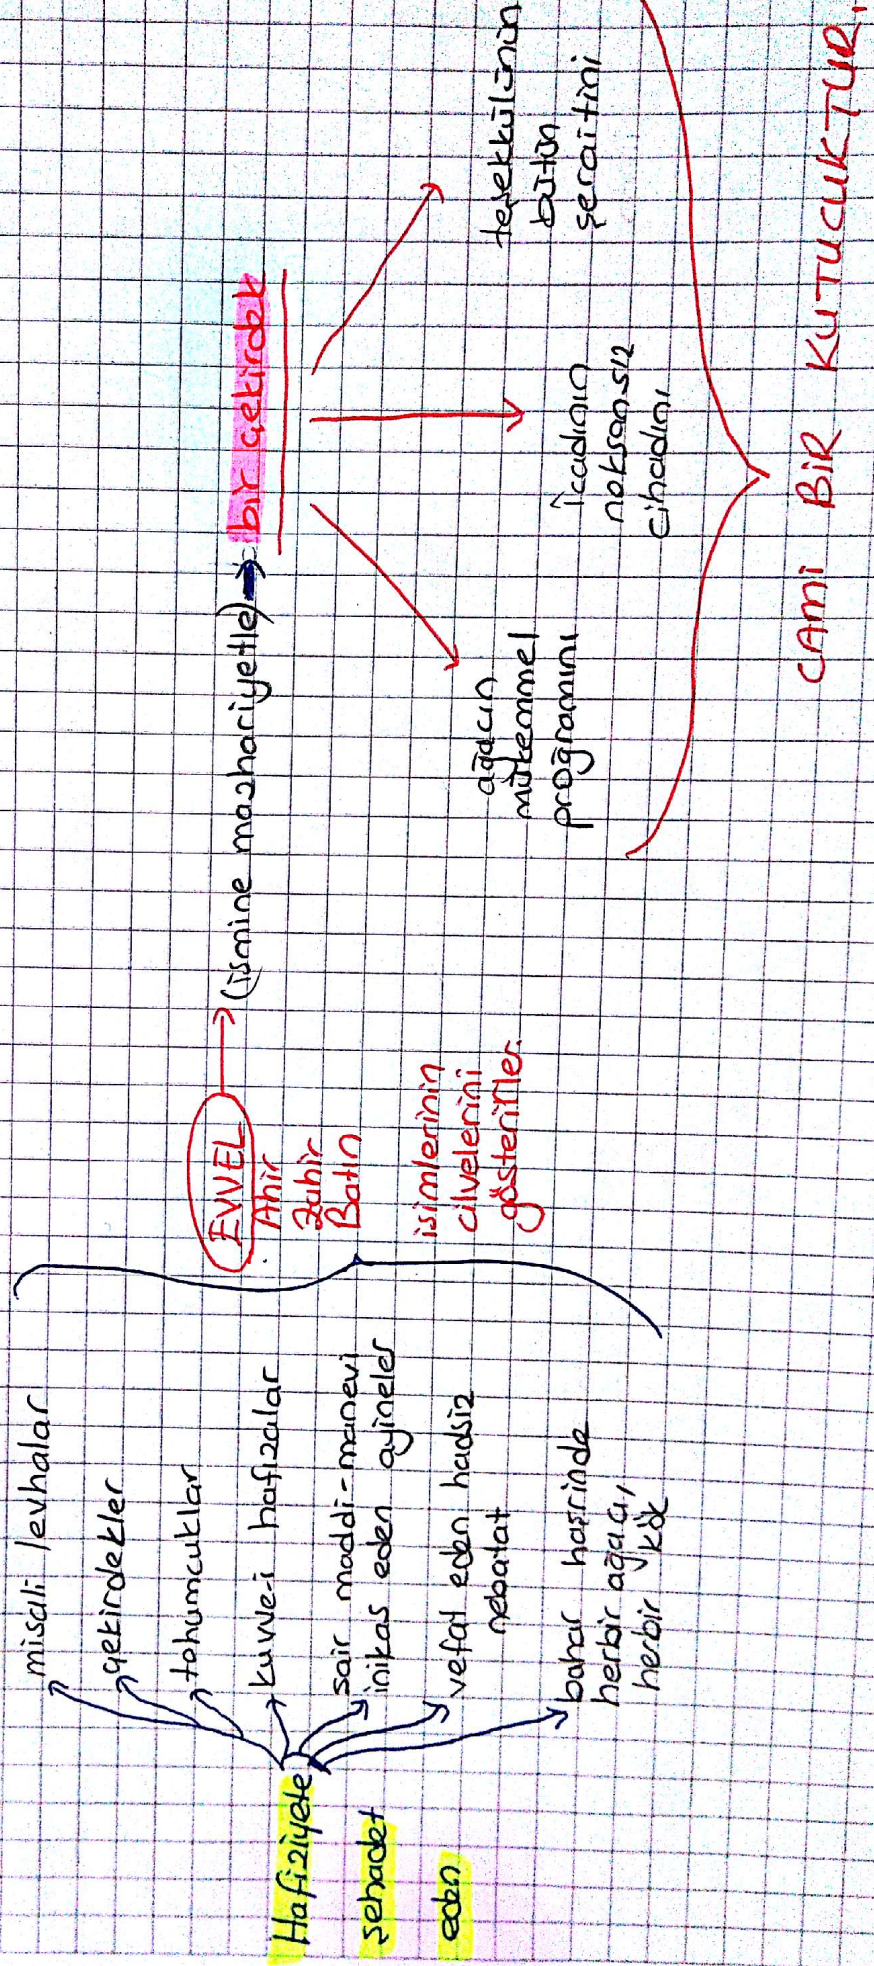 Hafiziyete
şehadet
eden
misali levhalar
çekirdekler
tohumcuklar
kuvve-i hafızalar
sair maddi-manevi
inikas eden ayineler
vefat eden hadsiz
nebatat
bahar haşrinde
herbir ağacı,
herbir kök
EVVEL
Ahir
Zahir
Batın
isimlerinin
cilvelerini
gösterirler.
(ismine mazhariyetle)
bir çekirdek
ağacın
mükemmel
proğramını
İcadının
noksansız
cihadını
teşekkülünün
bütün
şeraitini
CAMİ BİR KUTUCUKTUR.